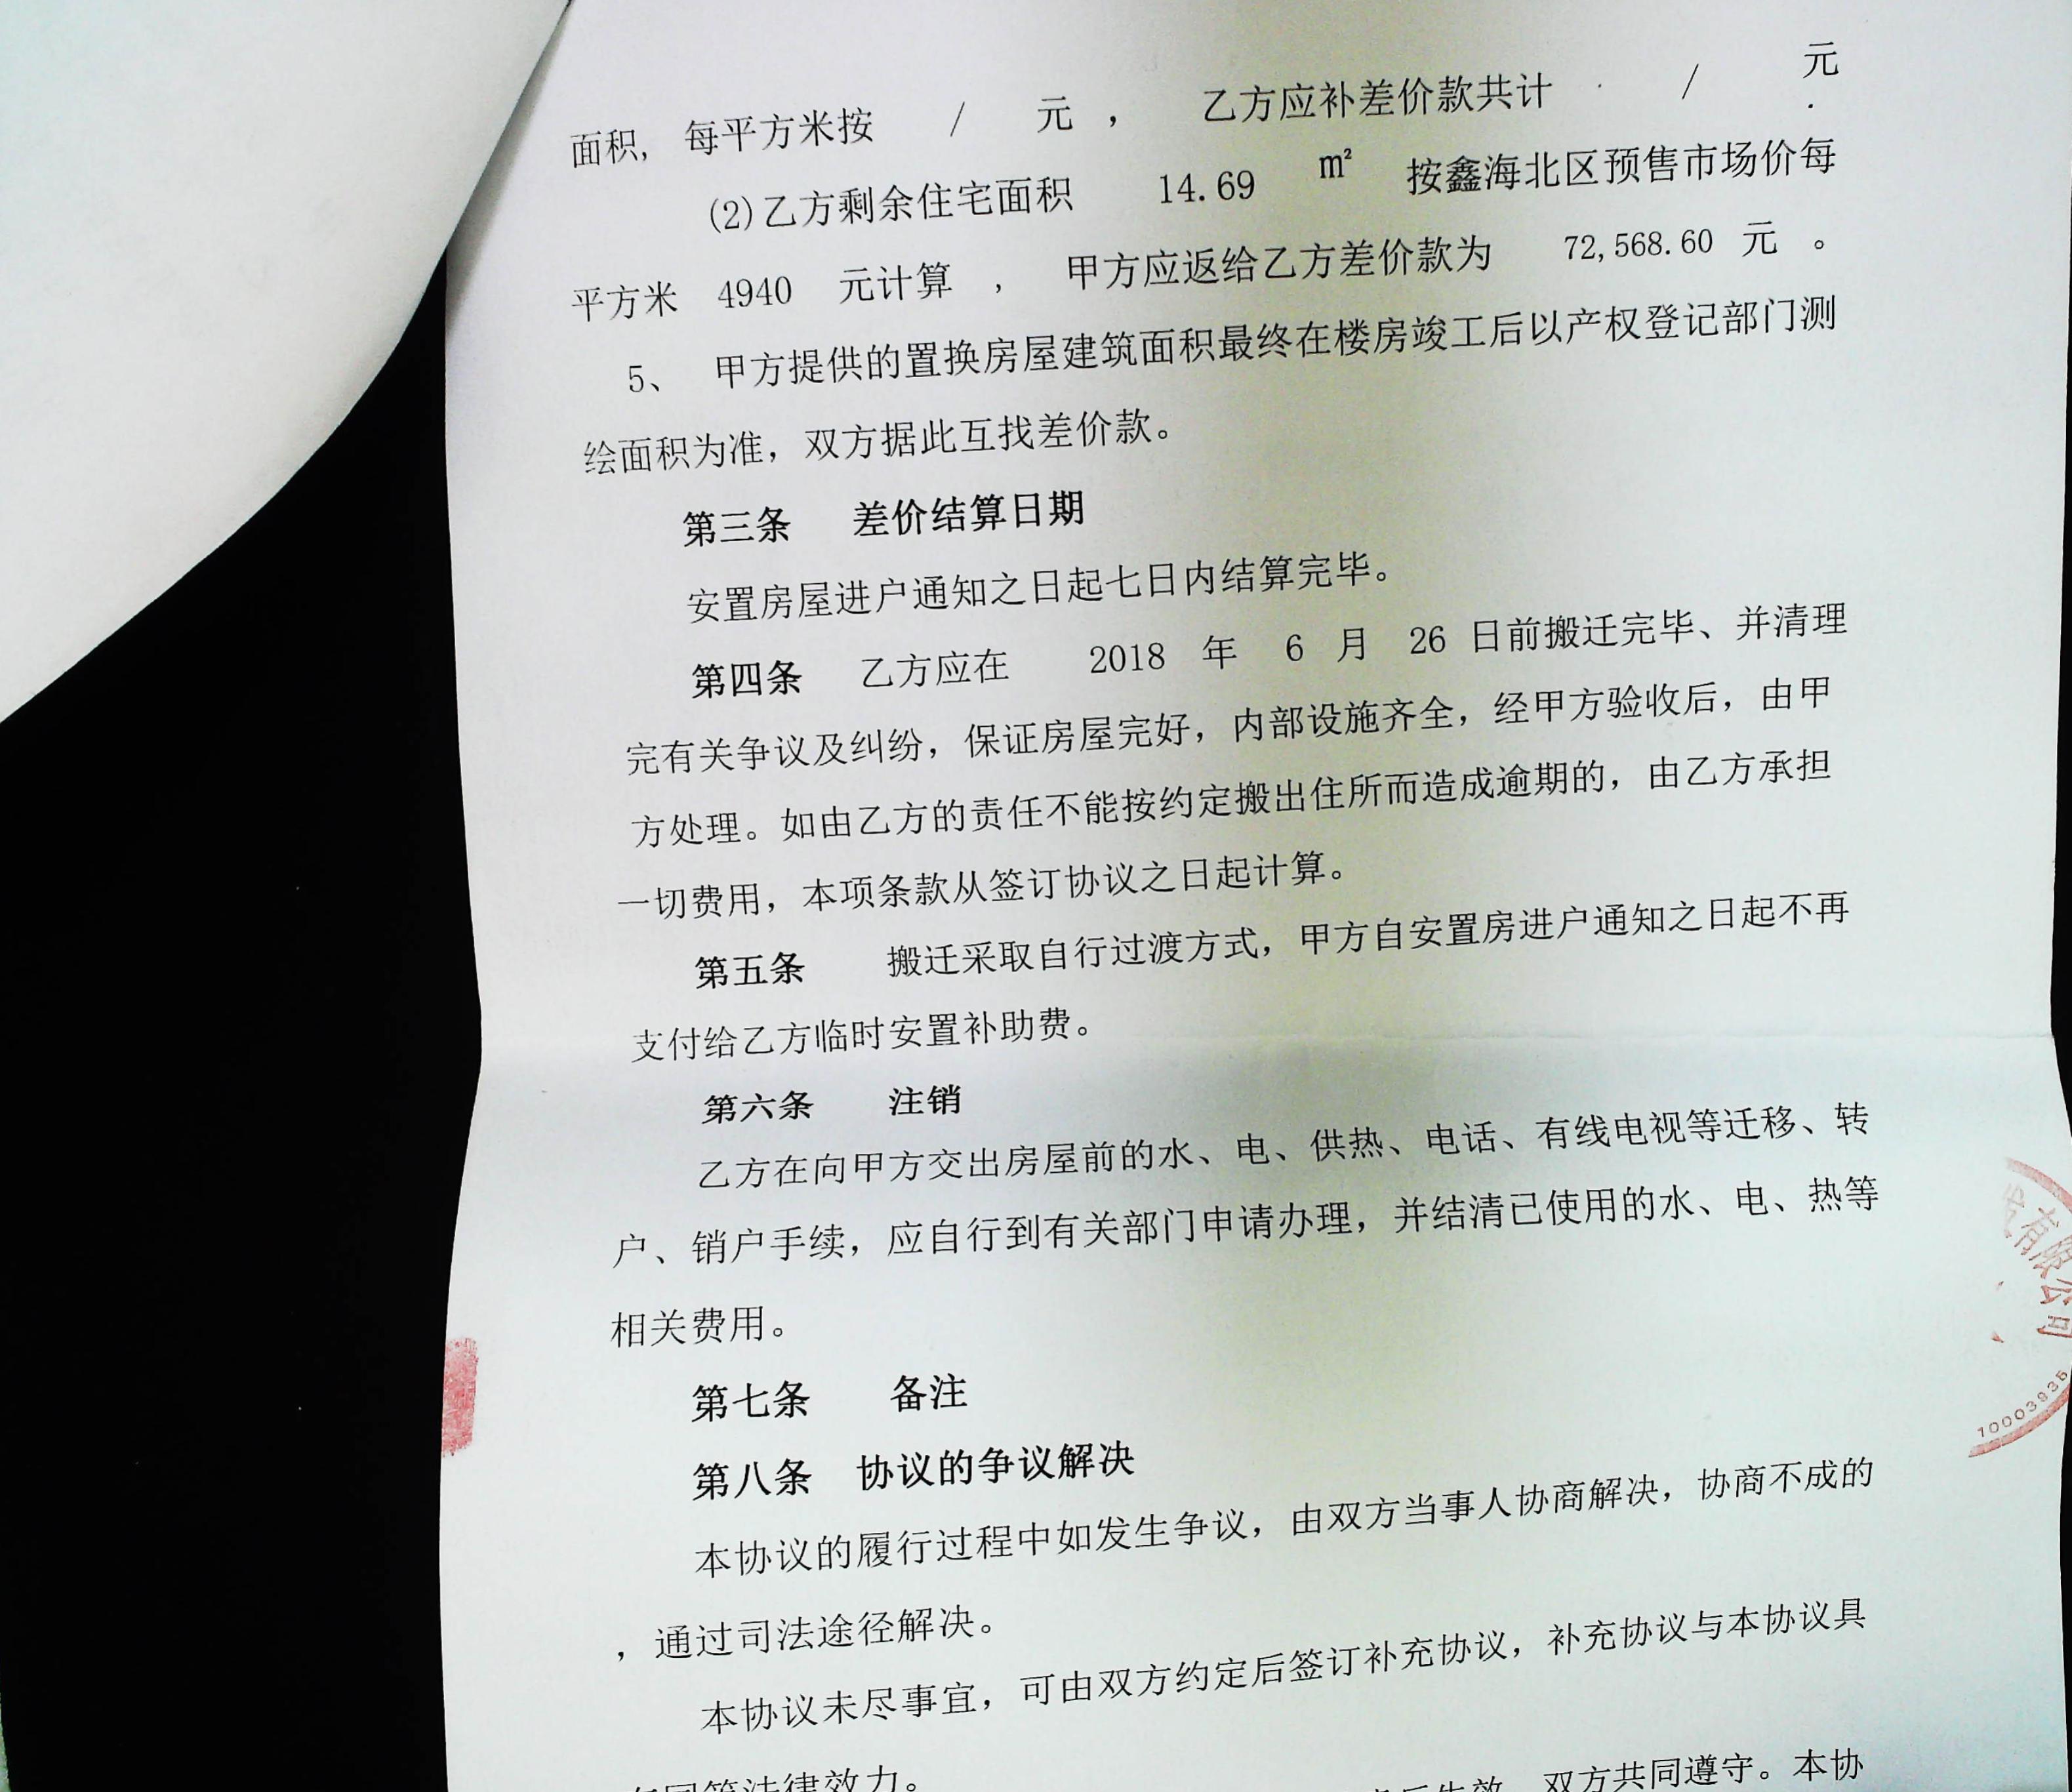 面积, 每平方米按 / 元 , 乙方应补差价款共计 / 元
(2)乙方剩余住宅面积 14.69 ㎡ 按鑫海北区预售市场价每
平方米 4940 元计算 , 甲方应返给乙方差价款为 72,568.60 元 。
5、 甲方提供的置换房屋建筑面积最终在楼房竣工后以产权登记部门测
绘面积为准，双方据此互找差价款。
第三条 差价结算日期
安置房屋进户通知之日起七日内结算完毕。
第四条 乙方应在 2018 年 6 月 26 日前搬迁完毕、并清理
完有关争议及纠纷，保证房屋完好，内部设施齐全，经甲方验收后，由甲
方处理。如由乙方的责任不能按约定搬出住所而造成逾期的，由乙方承担
一切费用，本项条款从签订协议之日起计算。
第五条 搬迁采取自行过渡方式，甲方自安置房进户通知之日起不再
支付给乙方临时安置补助费。
第六条 注销
乙方在向甲方交出房屋前的水、电、供热、电话、有线电视等迁移、转
户、销户手续，应自行到有关部门申请办理，并结清已使用的水、电、热等
相关费用。
第七条 备注
第八条 协议的争议解决
本协议的履行过程中如发生争议，由双方当事人协商解决，协商不成的
，通过司法途径解决。
本协议未尽事宜，可由双方约定后签订补充协议，补充协议与本协议具
同等法律效力。
生效 双方共同遵守。本协
有限公司
10003935